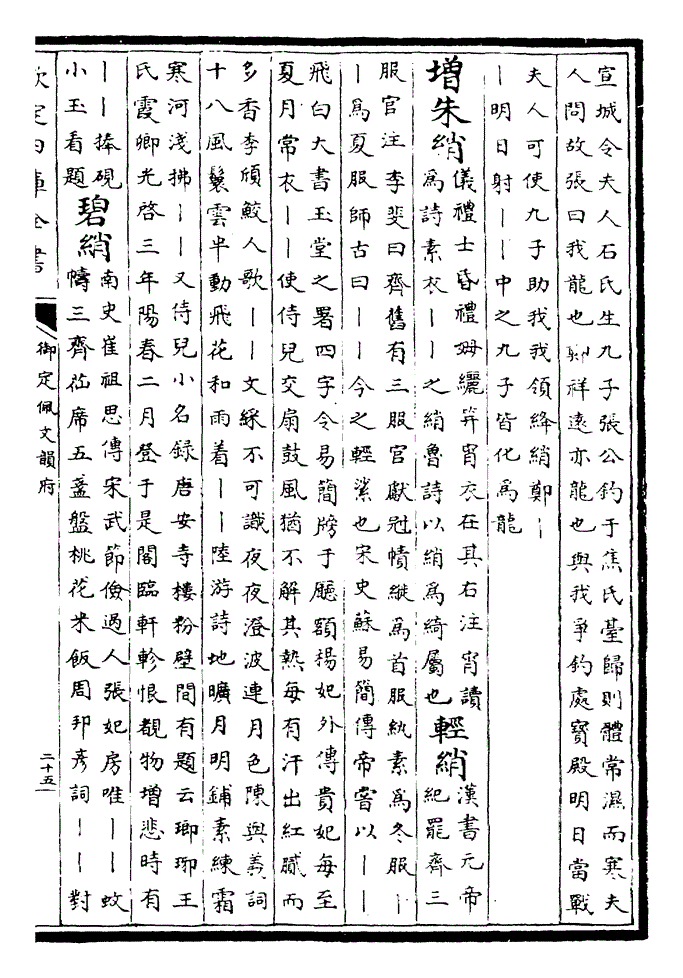 宣城令夫人石氏生九子張公釣于焦氏臺歸則體常濕而寒夫
人問故張曰我龍也鄭祥遠亦龍也與我爭釣處寶殿明日當戰
夫人可使九子助我我領絳綃鄭丨
丨明日射丨丨中之九子皆化為龍
增朱綃
儀禮士昏禮姆纚笄宵衣在其右注宵讀
為詩素衣丨丨之綃魯詩以綃爲綺屬也
輕綃
漢書元帝
紀罷齊三
服官注李斐曰齊舊有三服官獻冠幘縰爲首服紈素爲冬服丨
丨爲夏服師古曰丨丨今之輕紗也宋史蘇易簡傳帝嘗以丨丨
飛白大書玉堂之署四字令易簡牓于廳額楊妃外傳貴妃每至
夏月常衣丨丨使侍兒交扇鼓風猶不解其熱每有汗出紅膩而
多香李頎鮫人歌丨丨文綵不可識夜夜澄波連月色陳與義詞
十八風鬟雲半動飛花和雨着丨丨陸游詩地曠月明鋪素練霜
寒河淺拂丨丨又侍兒小名録唐安寺樓粉壁間有題云瑯琊王
氏霞卿光啓三年陽春二月登于是閣臨軒軫恨覩物增悲時有
丨丨捧硯
小玉看題
碧綃
南史崔祖思傳宋武節儉過人張妃房唯丨丨蚊
幬三齊苮席五盞盤桃花米飯周邦彥詞丨丨對
欽定四庫全書
御定佩文韻府
二十五